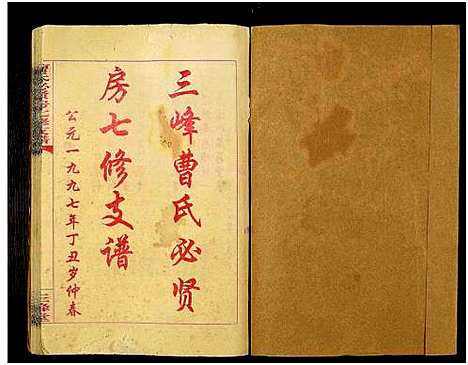 三峰曹氏必贤
房七修支谱
公元一九九七年丁丑岁仲春